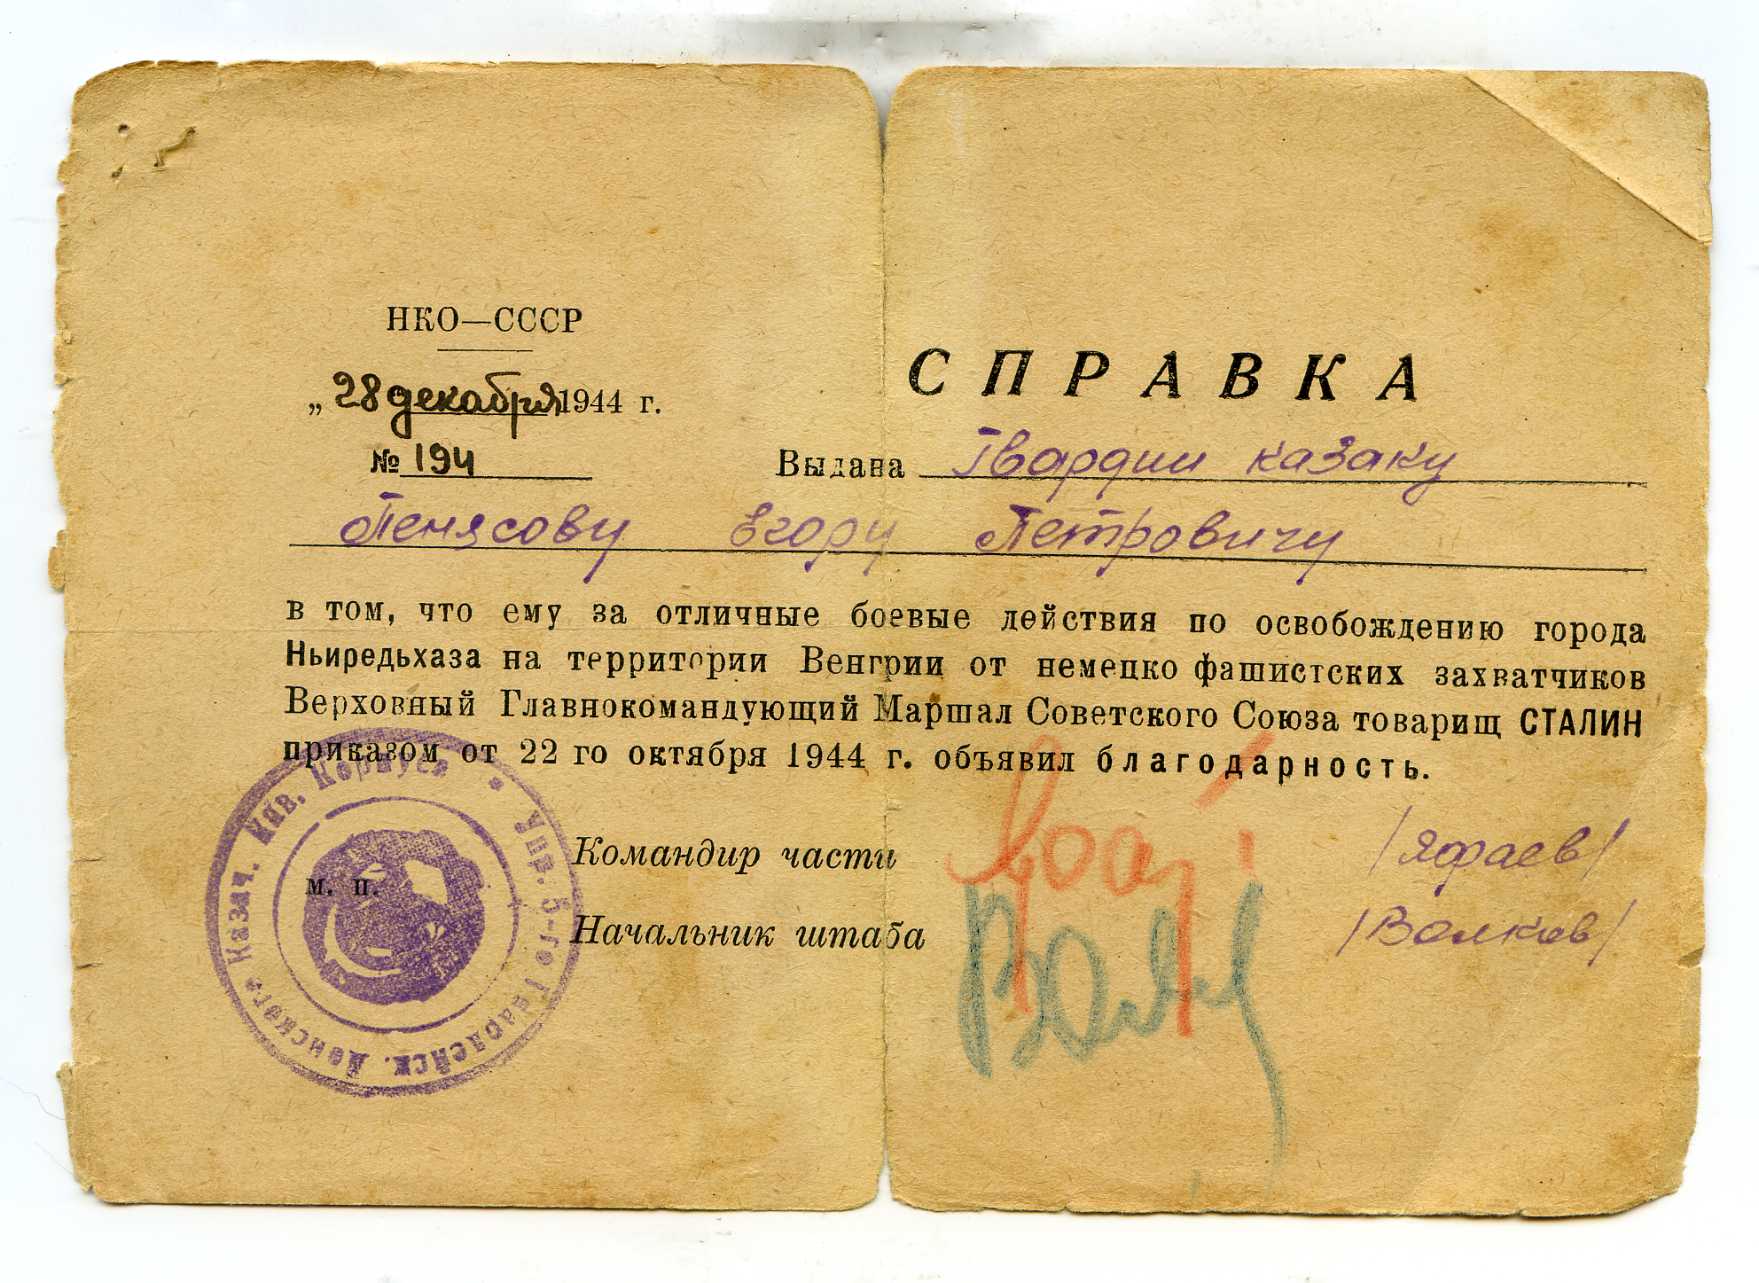 НКО—СССР
„28 декабря 1944 г.
№ 194
СПРАВКА
Выдана Гвардии казаку
Пенясову Егору Петровичу
в том, что ему за отличные боевые действия по освобождению города
Ньиредьхаза на территории Венгрии от немецко фашистских захватчиков
Верховный Главнокомандующий Маршал Советского Союза товарищ СТАЛИН
приказом от 22 го октября 1944 г. объявил благодарность.
Командир части /Яфаев/
м. п.
Начальник штаба /Волков/
Упр. 5-го Гвардейск. Донского Казач. Кав. Корпуса